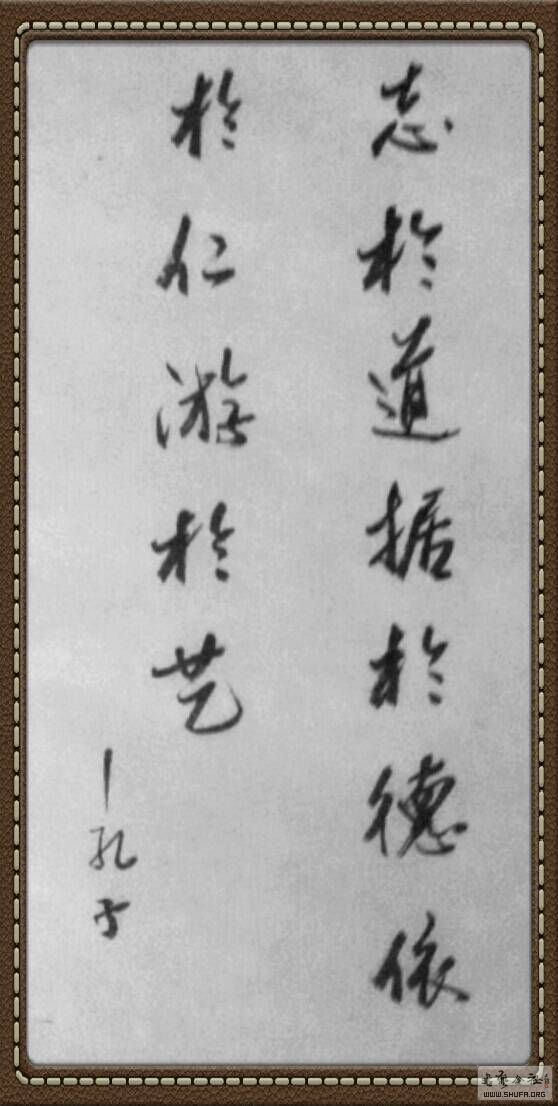 志於道据於德依
於仁游於艺
—孔子
WWW.SHUFA.ORG